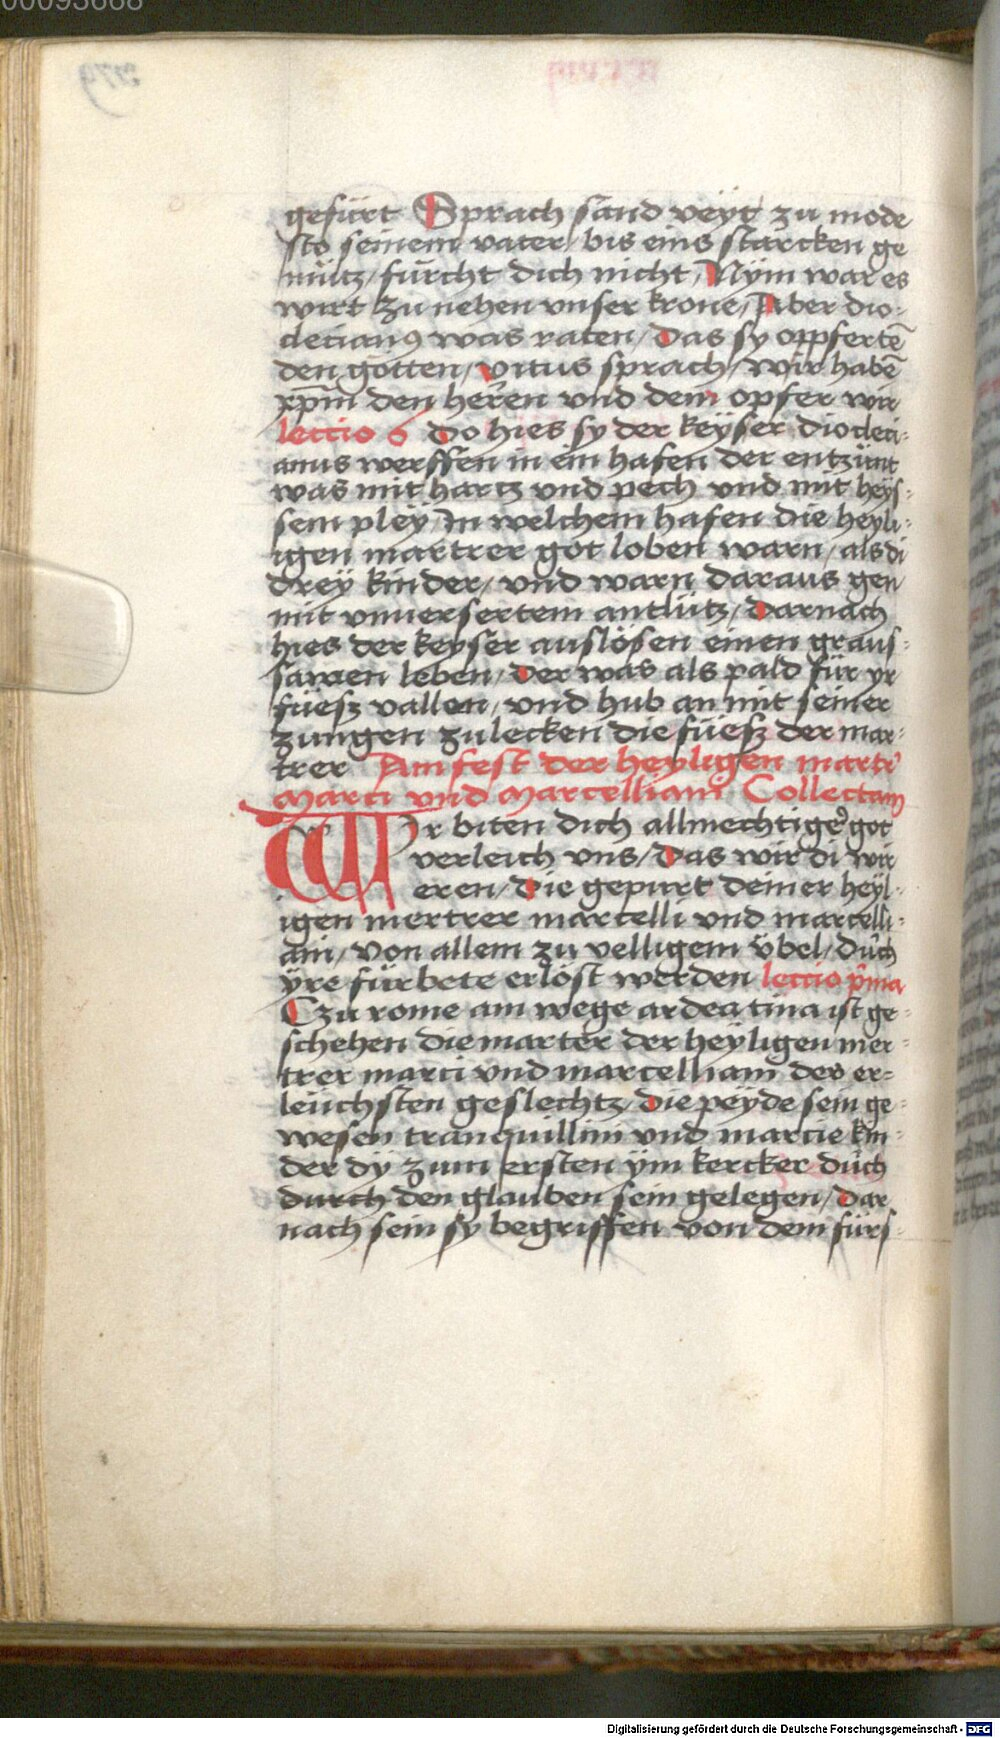 00093668
gefürt Sprach sand veyt zu mode
sto seinem vater / bis eins starcken ge
mütz / fürcht dich nicht / Nÿm war es
wirt zu nehen vnser krone / Aber dio-
clecianꝰ was raten / das sy oppfertē
den götten / vitus sprach / wir habē
xp̄m den herren vnd dem opfer wir
lectio 6 do hies sy der keÿser diocleci-
anus werffen in ein hafen der entzünt
was mit hartz vnd pech vnd mit heÿs-
sem pleÿ / In welchem hafen die heyli-
igen martrer got loben warn / als di
dreÿ kinder / vnd warn daraus gen
mit vnuersertem antlütz / darnach
hies der keyser auslösen einen graus-
samen leben / der was als pald für yr
füesz vallen / vnd hub an mit seiner
zungen zu lecken die füesz der mar-
trer Am fest der heyligen martr̄
Marci vnd Marcelliani Collectam
Wir biten dich allmechtiger got
verleich vns / Das wir di wir
eren / die gepurt deiner heÿl-
igen mertrer marcelli vnd marcelli-
ani / von allem zu velligem vbel / durch
ÿre fürbete erlöst werden lectio p̄ma
Czu rome am wege ardeatina ist ge-
schehen die marter der heÿligen mer-
trer marci vnd marcelliani des er-
leuchsten geslechtz / die peÿde sein ge-
wesen tranquillini vnd marcie kin-
der dÿ zum ersten ÿm kercker durch
durch den glauben sein gelegen / Dar
nach sein sy begriffen von dem fürs-
Digitalisierung gefördert durch die Deutsche Forschungsgemeinschaft - DFG